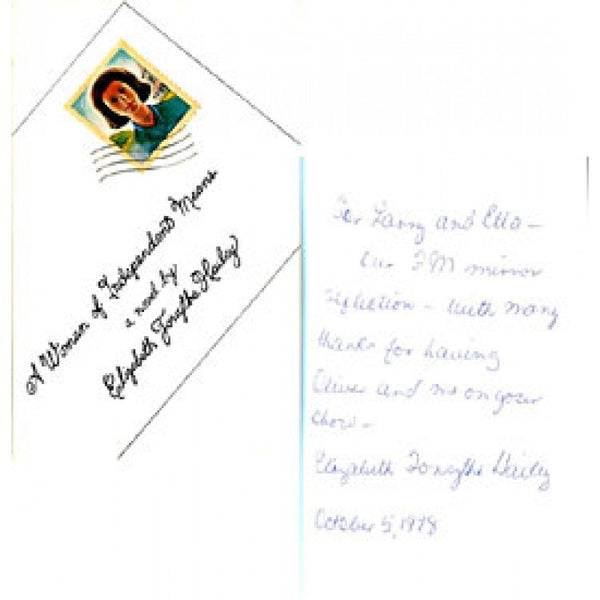 A Woman of Independent Means
a novel by
Elizabeth Forsythe Hailey
For Larry and Etta –
our FM mirror
reflection – with many
thanks for having
Oliver and me on your
show –
Elizabeth Forsythe Hailey
October 5, 1978